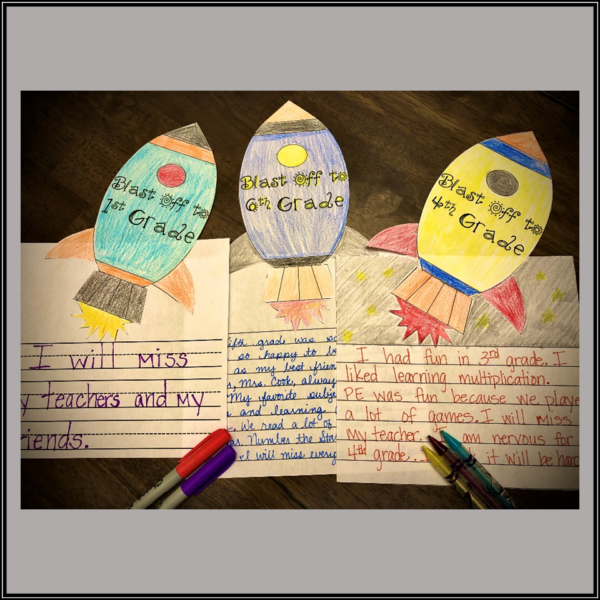 Blast Off to
1st Grade
Blast Off to
6th Grade
Blast Off to
4th Grade
I will miss
teachers and my
iends.
ifth grade was so
so happy to
as my best
Mrs. Cook,
My favorite
and learning
We read a lot of
Number the
I will miss every
I had fun in 3rd grade. I
liked learning multiplication.
PE was fun because we playe
a lot of games. I will miss
my teacher. I am nervous for
4th grade... it will be hard